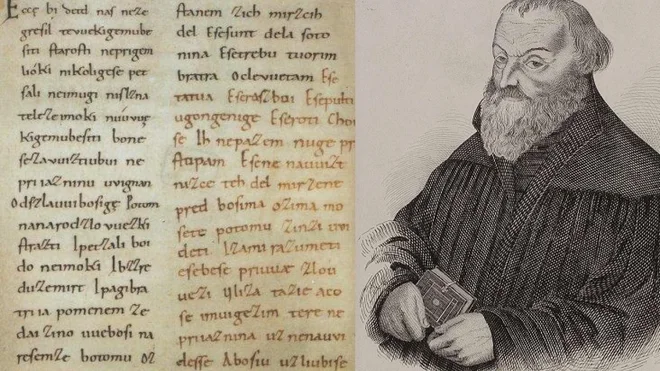 Ecce bi detd naſ neze
greſil tevuekigemube
ſiti ſtaroſti neprigem
lióki nikoligeſe pet
ſali neimugi niſlzna
telezeimoki níuvue
kigemubeſiti bone
ſezavuiztiubui ne
priiazninu uvignan
Odſzlauuiboſige Potom
nanarodzlovuezki
ſtraſti Ipetzali boi
do neimoki Ibzzre
duzemirt Ipagibra
triia pomenem ze
dai zino uuebosi na
resemze botomu Oz
ſtanem zich mirzcih
del Eſeſunt dela ſoto
nina Eſetrebu tuorim
bratra Oclevuetam Eſe
tatua Eſeraſzboi Eſepulti
ugongenige Eſeroti Choi
ſe Ih nepazem nuge pr
ſtupam Eſene nauuizt
nazce teh del mirzene
pred bosima ozima mo
ſete potomu zinzi uvi
deti Izami razumeti
eſebeſe priuuae zlou
uezi Uliza tazie aco
ſe imuigezim tere ne
priiaznina uznenauvi
deſſe Aboſiu uzliubiſe